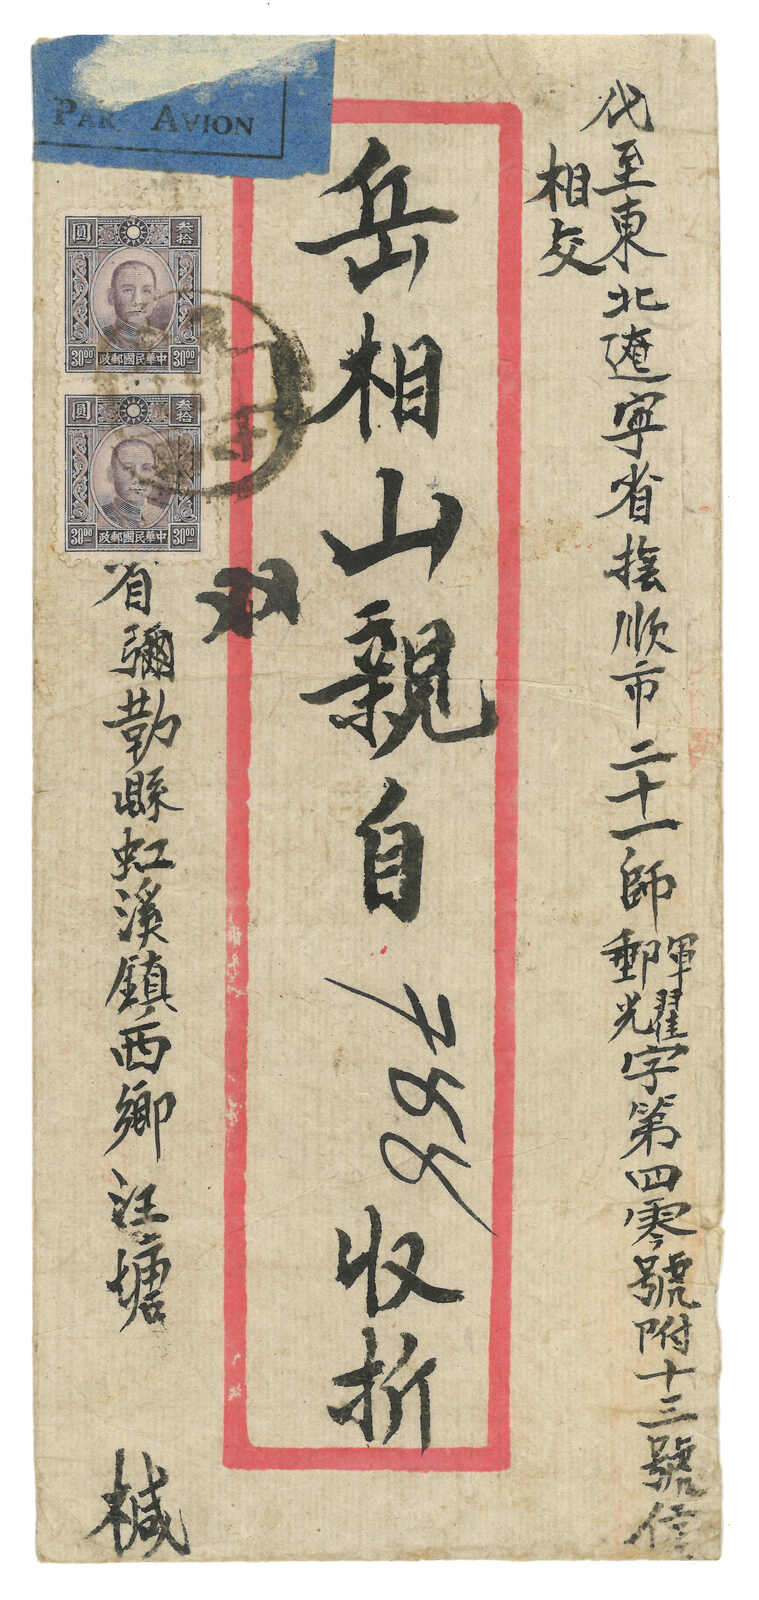 代至東北遼寧省撫順市二十一師郵暉耀字第四零號附十三號信
相交
岳相山親自
788
收折
省彌勒縣虹溪鎮西鄉汪塘
椷
PAR AVION
圓
叁拾
30⁰⁰
政郵國民華中
30⁰⁰
圓
叁拾
30⁰⁰
政郵國民華中
30⁰⁰